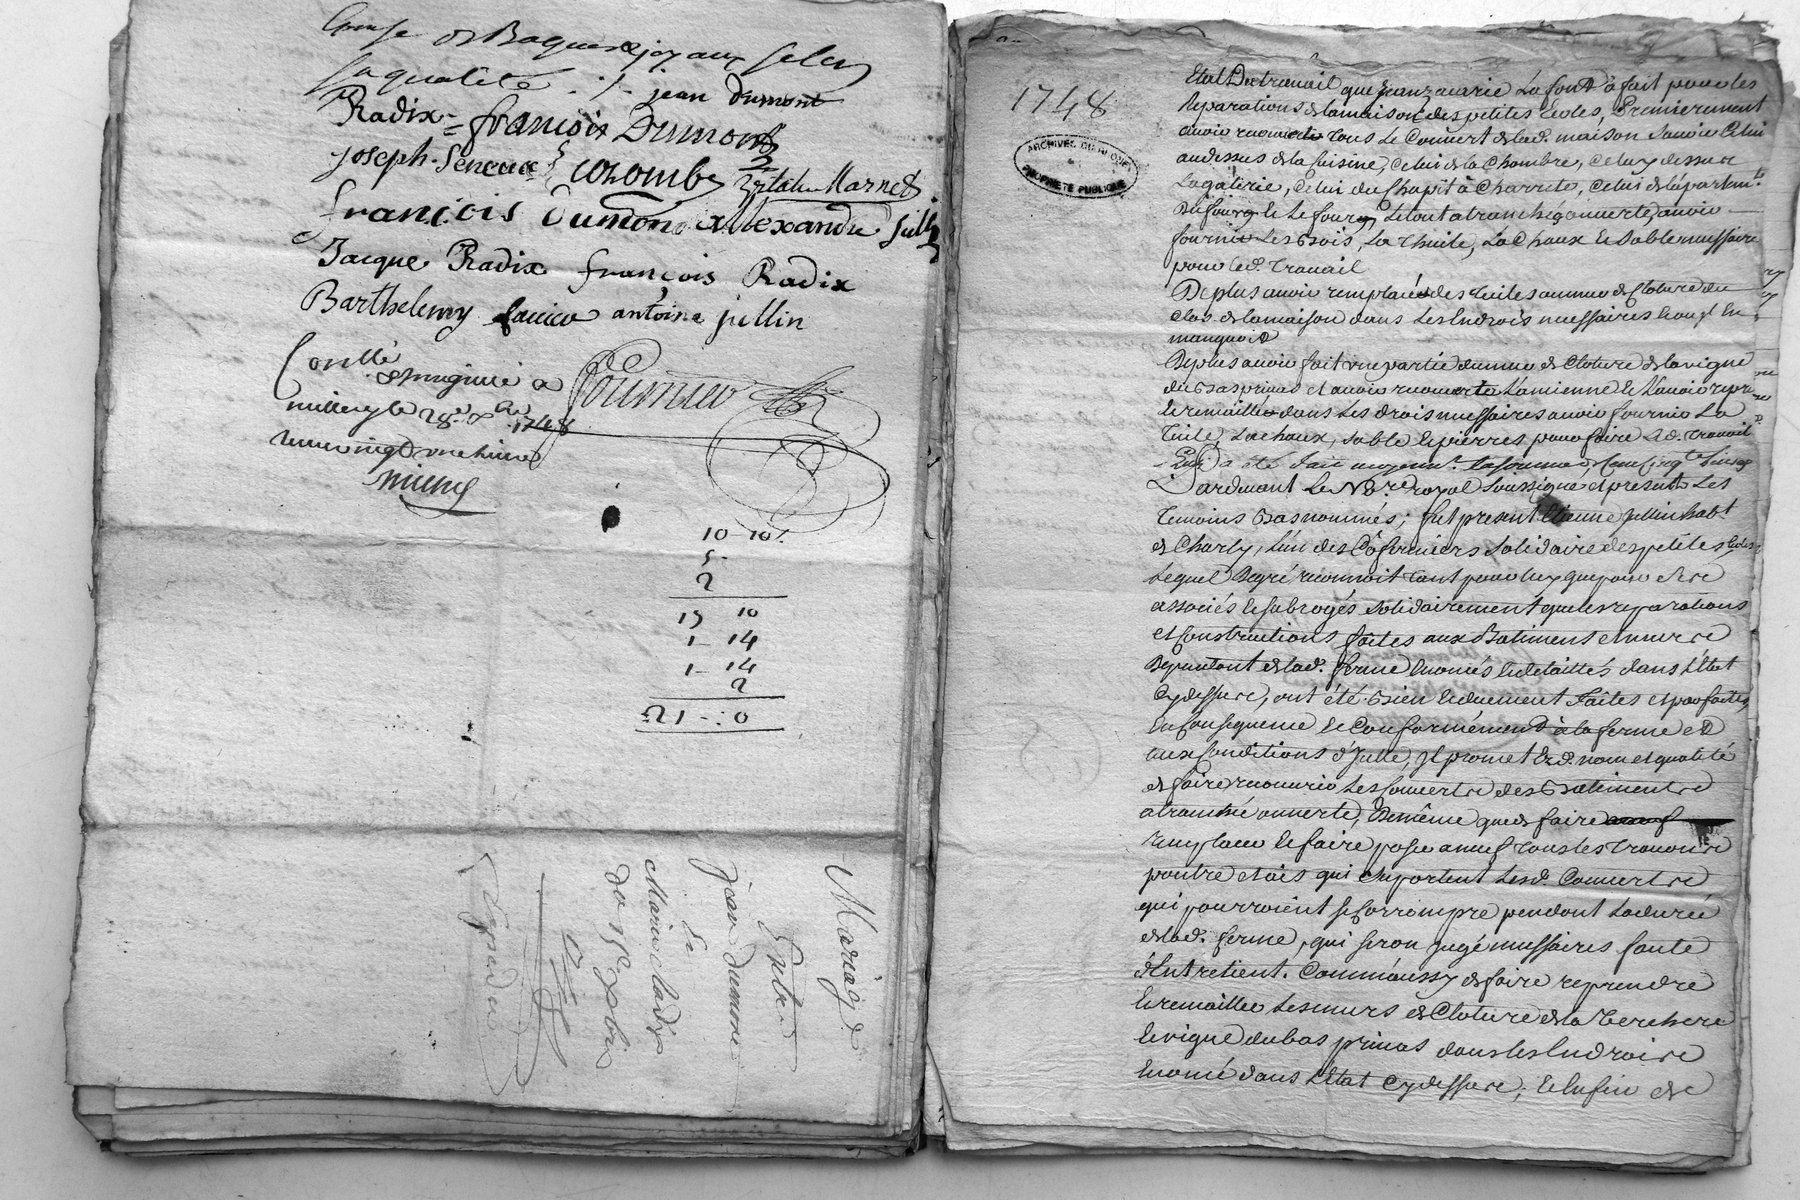 de Bagues & joyaux selon
sa qualité jean dumont
Radix françois Dumont
joseph colombe
françois dumond Allexandre jull
Jacque Radix françois Radix
Barthelemy favier antoine jullin
Con.llé
a Fournier
millery le 28e 1748
livres
10 - 10 s.
5 -
2
17 10
1 - 14
1 - 14
2
Mariage
Entre
jean dumont
&
Marie cladix
du 15e
Expedié
1748
ARCHIVES DU RHONE
PROPRIÉTÉ PUBLIQUE
Etat Du travail que a fait pour les
reparations de la maison des petites Ecoles, Premierement
avoir recouverts tous le Couvert de lad. maison Scavoir Celui
audessus de la Cuisine, Celui de la Chambre, Celuy dessur
La galerie, Celui du Chapit à Charrete, Celui de
Du four, & Le four, le tout a tranché ouverte, avoir
fournir Les bois, La Thuile, La Chaux & sable nessaire
pour led. travail
De plus avoir remplacé des tuiles au mur de Cloture du
Clos de la maison dans Les Endrois nessaires ou il En
manquoit
De plus avoir fait une partie du mur de Cloture de la vigne
du bas privas et avoir recouverte L'ancienne & L'avoir repri
& remaillée dans Les drois nessaires avoir fournir La
Tuile, La chaux, sable & pierres pour faire Led. travail
a été fait moyenn.t la somme de livres
Pardevant Le No.re royal Soussigné et presents Les
temoins bas nommés; fut present Etienne jullin hab.t
de Charly, L'un des Cofermiers solidaire des petites Ecoles
Lequel De gré reconnoit tant pour luy que pour ses
associés & subrogés solidairement que les reparations
et Constructions faites aux Batiments et murs
Dependant de lad. ferme Enoncés & detaillés dans L'Etat
Cy dessus, ont été bien & duement Faites et parfaites,
En Consequence & Conformément à la ferme et
aux Conditions d'Icelle, Il promet Esd. nom et qualité
de faire recouvrir Les Couverts des Batiments
a tranché ouverte, De même que de faire
remplacer & faire poser a neuf tous les travons
poutre et ais qui suportent Lesd. Couverts
qui pourroient se Corrompre pendant La durée
de lad. ferme, qui seron jugé nessaires faute
d'Entretient. Comm'aussy de faire reprendre
& remailler Les murs de Cloture de la Terchere
& vigne du bas privas dans les Endroits
Enoncé dans L'Etat Cy dessus; & Enfin de